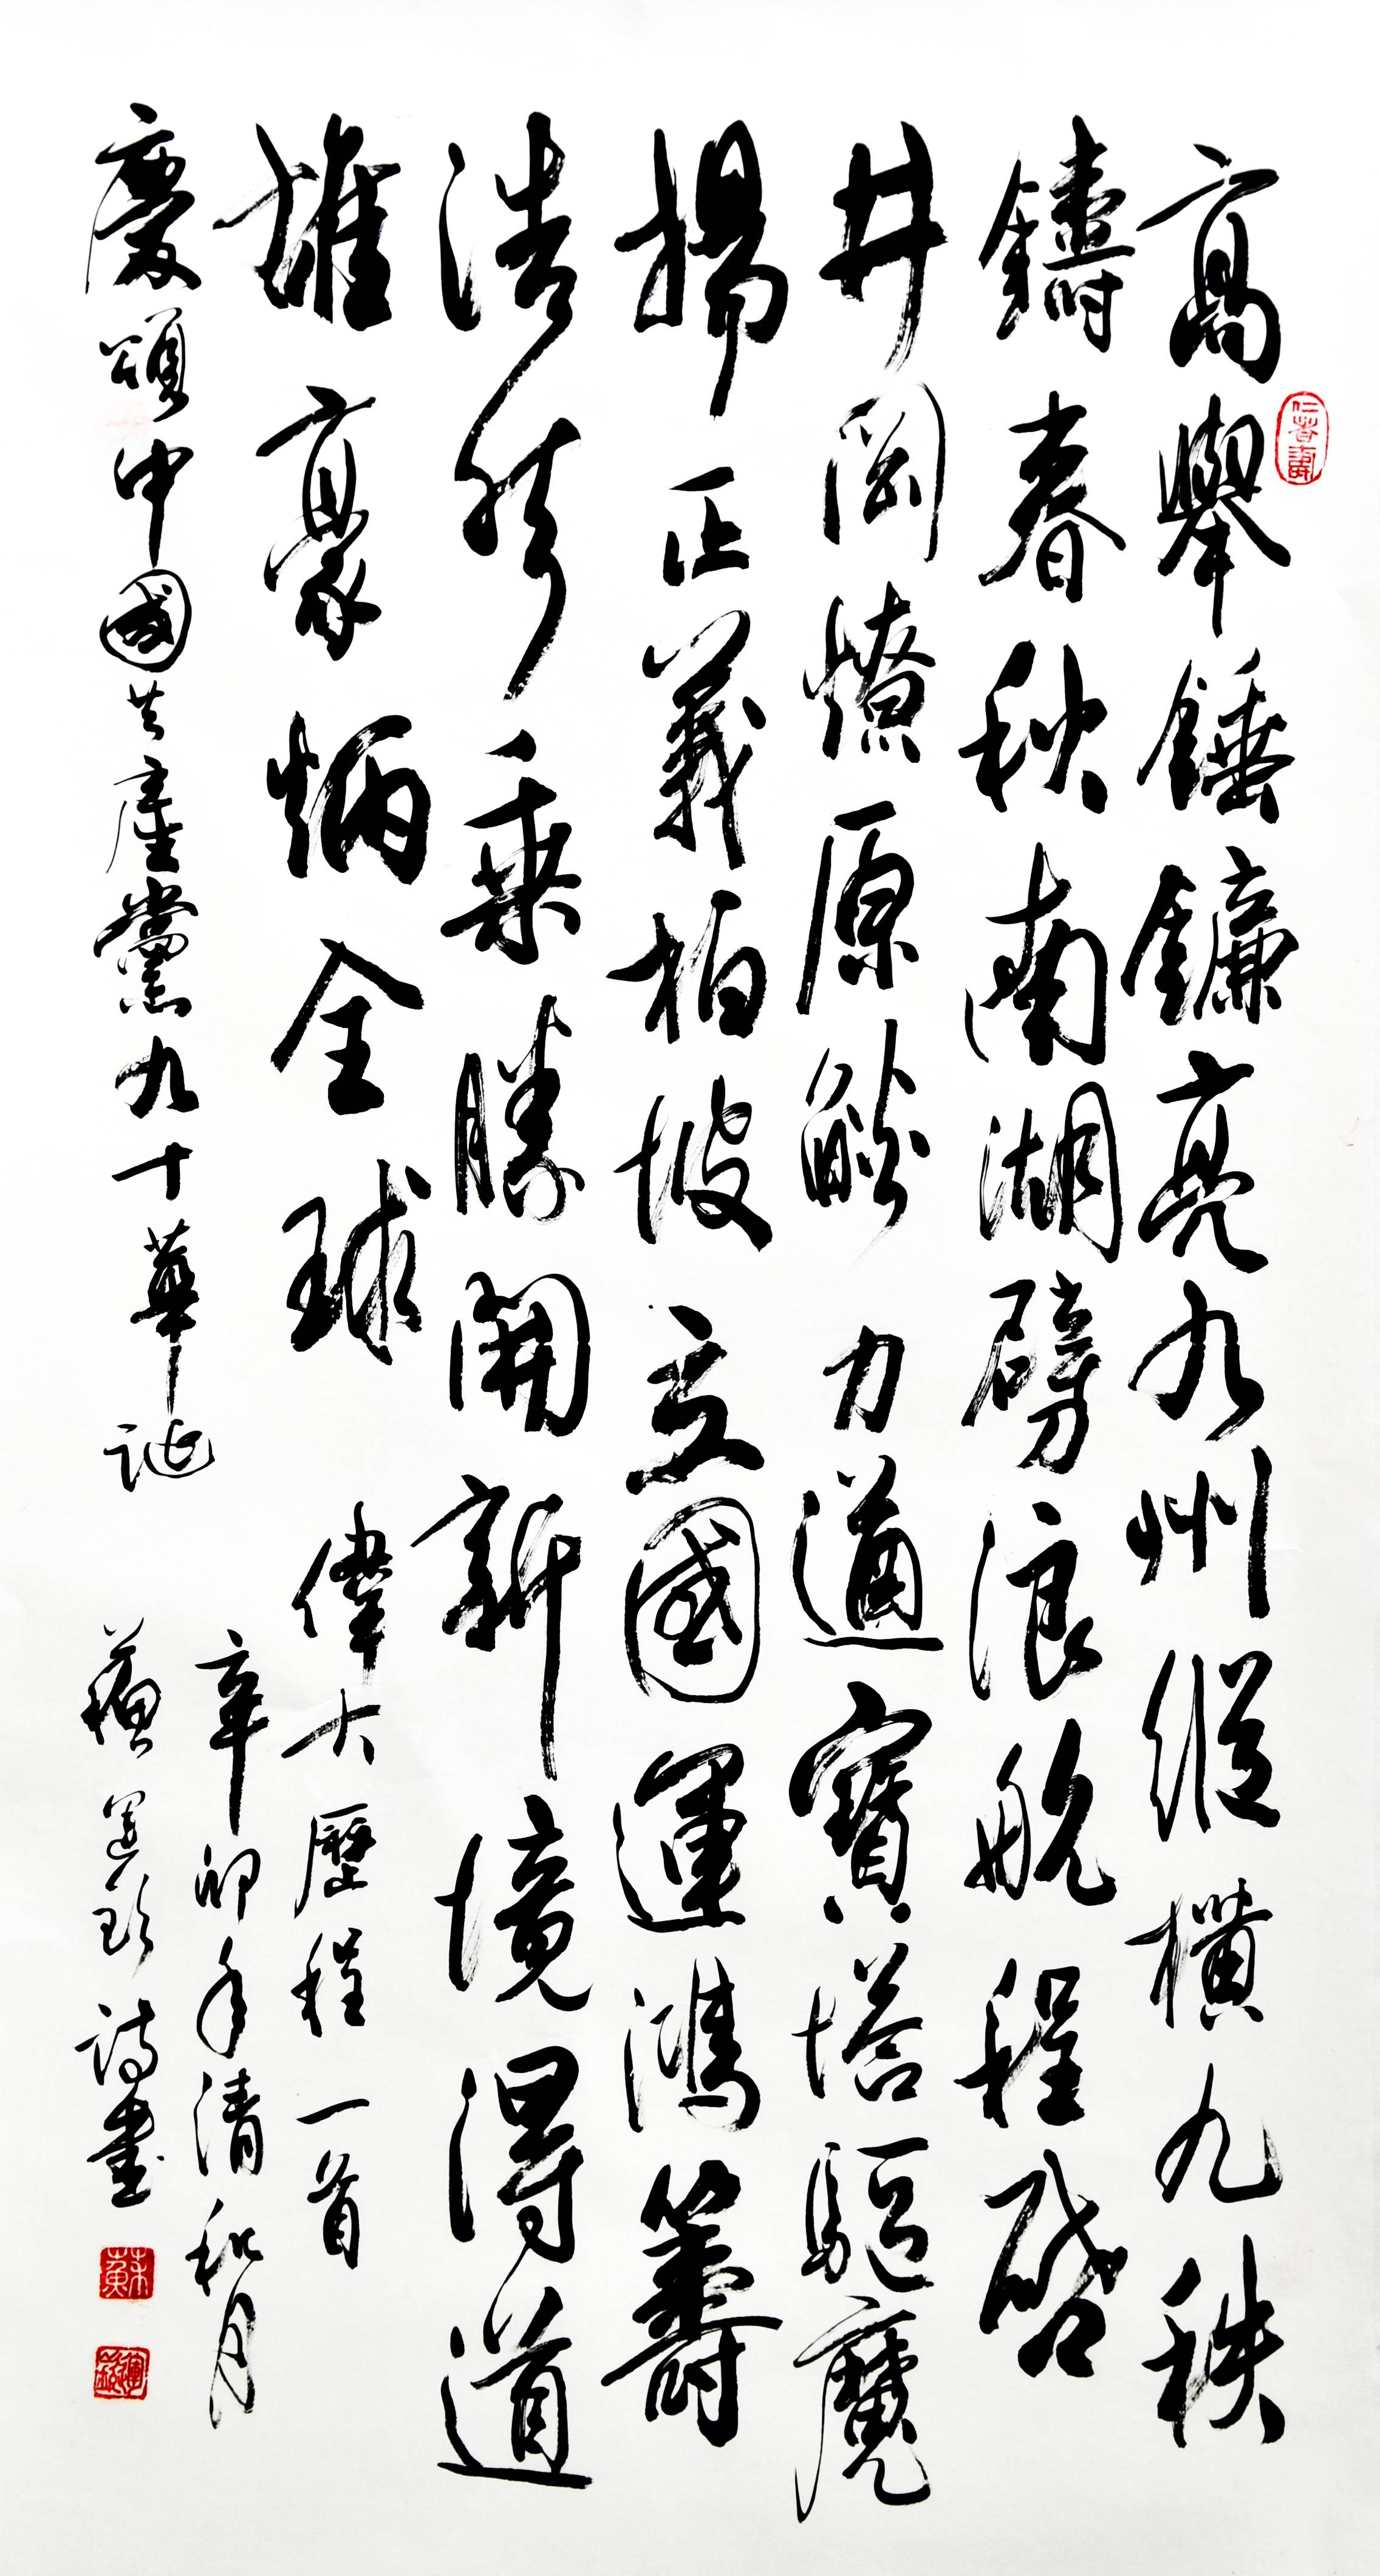 高舉錘鐮亮九州縱橫九秩
鑄春秋南湖劈浪航程啓
井岡燎原燄力遒寶塔驅魔
揚正義柏坡立國運鴻籌
浩然乘勝開新境得道
雄豪炳全球
偉大歷程一首
慶頌中國共產黨九十華誕
辛卯年清和月
蘇運 詩書
仁者壽